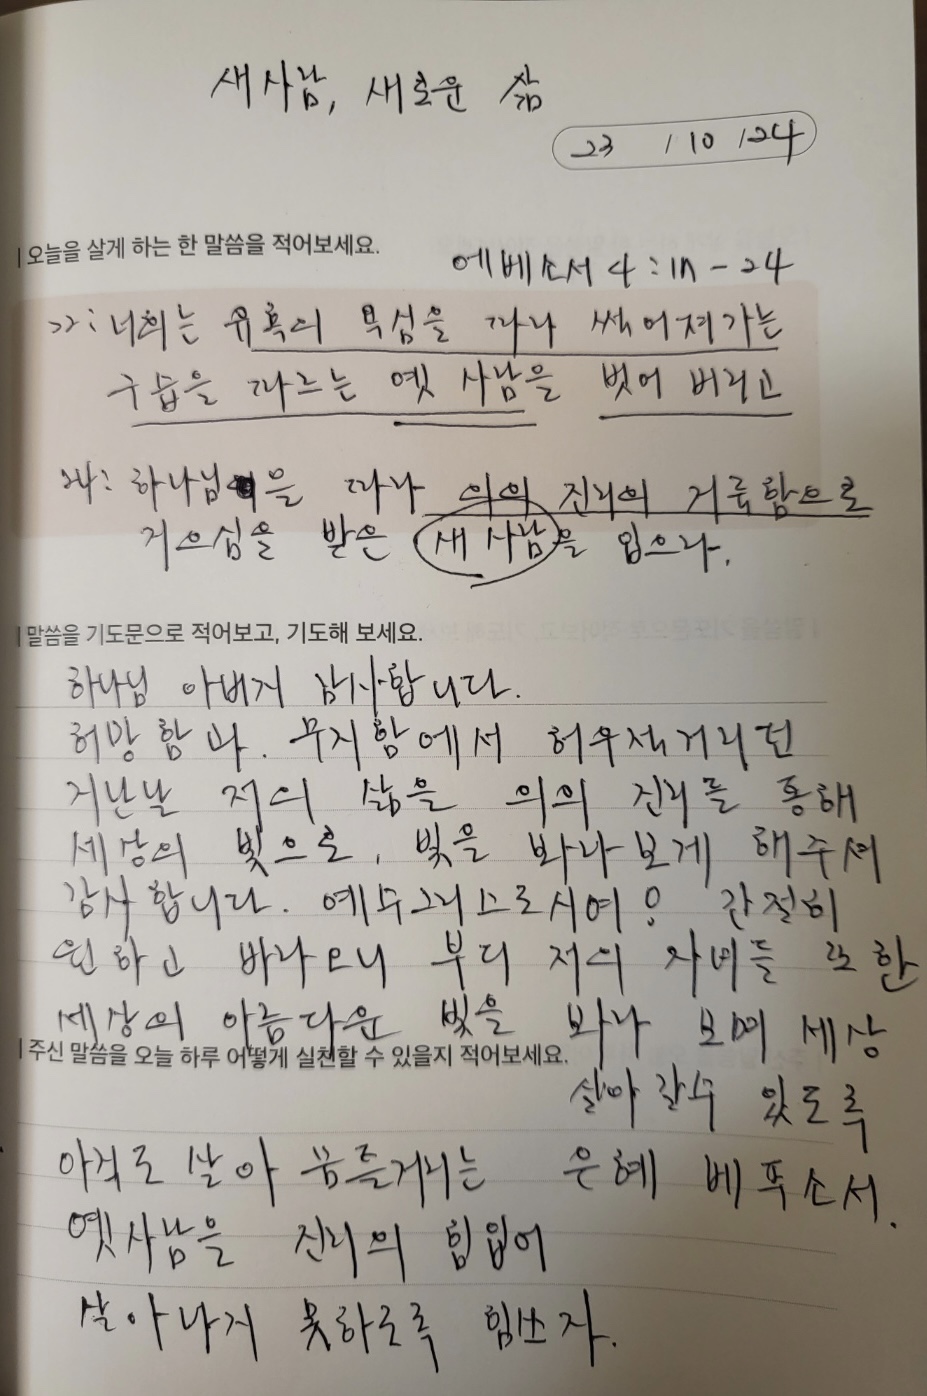 새사람, 새로운 삶
23 / 10 / 24
오늘을 살게 하는 한 말씀을 적어보세요.
에베소서 4 : 17 - 24
22: 너희는 유혹의 욕심을 따라 썩어져가는
구습을 따르는 옛 사람을 벗어 버리고
24: 하나님을 따라 의의 진리의 거룩함으로
지으심을 받은 새 사람을 입으라.
말씀을 기도문으로 적어보고, 기도해 보세요.
하나님 아버지 감사합니다.
허망함과. 무지함에서 허우적거리던
지난날 저의 삶을 의의 진리를 통해
세상의 빛으로, 빛을 바라보게 해주셔
감사합니다. 예수그리스도시여! 간절히
원하고 바라오니 부디 저의 자녀들 또한
세상의 아름다운 빛을 바라 보며 세상
살아갈수 있도록
은혜 베푸소서.
주신 말씀을 오늘 하루 어떻게 실천할 수 있을지 적어보세요.
아직도 살아 꿈틀거리는
옛사람을 진리의 힘입어
살아나지 못하도록 힘쓰자.